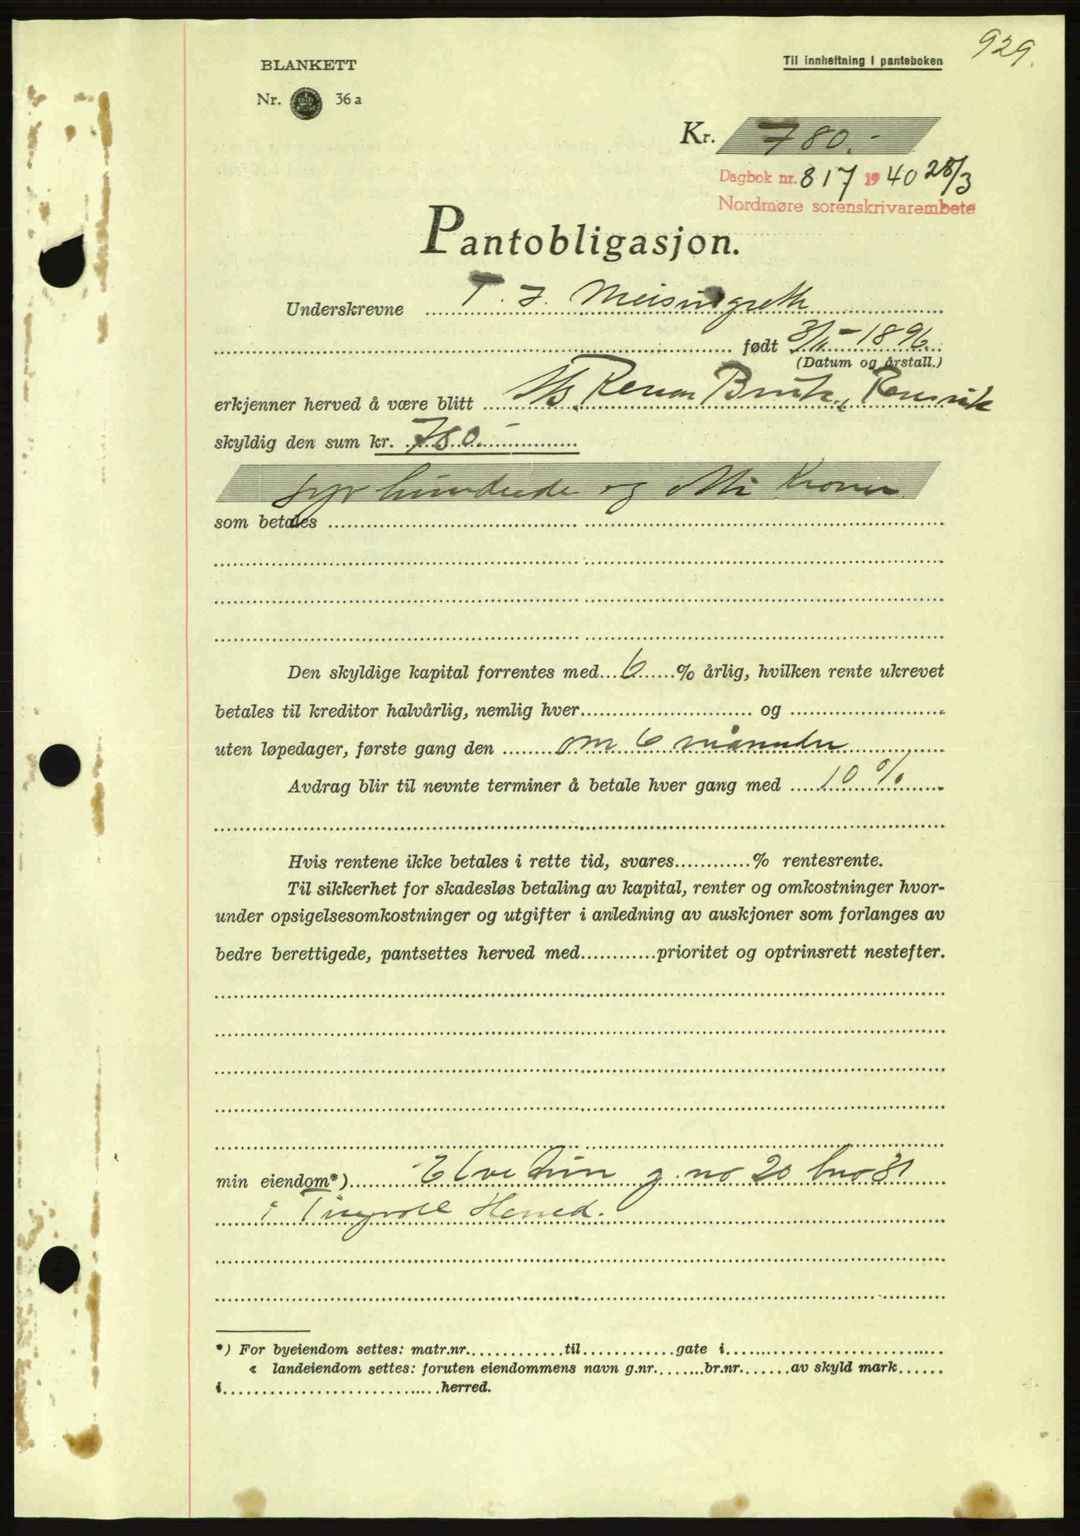 929.
BLANKETT
Til innheftning i panteboken
Nr. 36 a
Kr. 780.-
Dagbok nr. 817 1940 28/3
Nordmøre sorenskrivarembete
Pantobligasjon.
Underskrevne T. J. Meisingseth
født 3/11-1896.
(Datum og årstall.)
erkjenner herved å være blitt Renen Bruk, Rensvik
skyldig den sum kr. 780.-
syv hundrede og Otti Kroner
som betales
Den skyldige kapital forrentes med 6 % årlig, hvilken rente ukrevet
betales til kreditor halvårlig, nemlig hver og
uten løpedager, første gang den om 6 måneder
Avdrag blir til nevnte terminer å betale hver gang med 10 %
Hvis rentene ikke betales i rette tid, svares % rentesrente.
Til sikkerhet for skadesløs betaling av kapital, renter og omkostninger hvor-
under opsigelsesomkostninger og utgifter i anledning av auskjoner som forlanges av
bedre berettigede, pantsettes herved med prioritet og optrinsrett nestefter.
min eiendom*) g. no 20 bno 81
i Tingvoll Herred.
*) For byeiendom settes: matr.nr. til gate i
« landeiendom settes: foruten eiendommens navn g.nr. br.nr. av skyld mark
i herred.